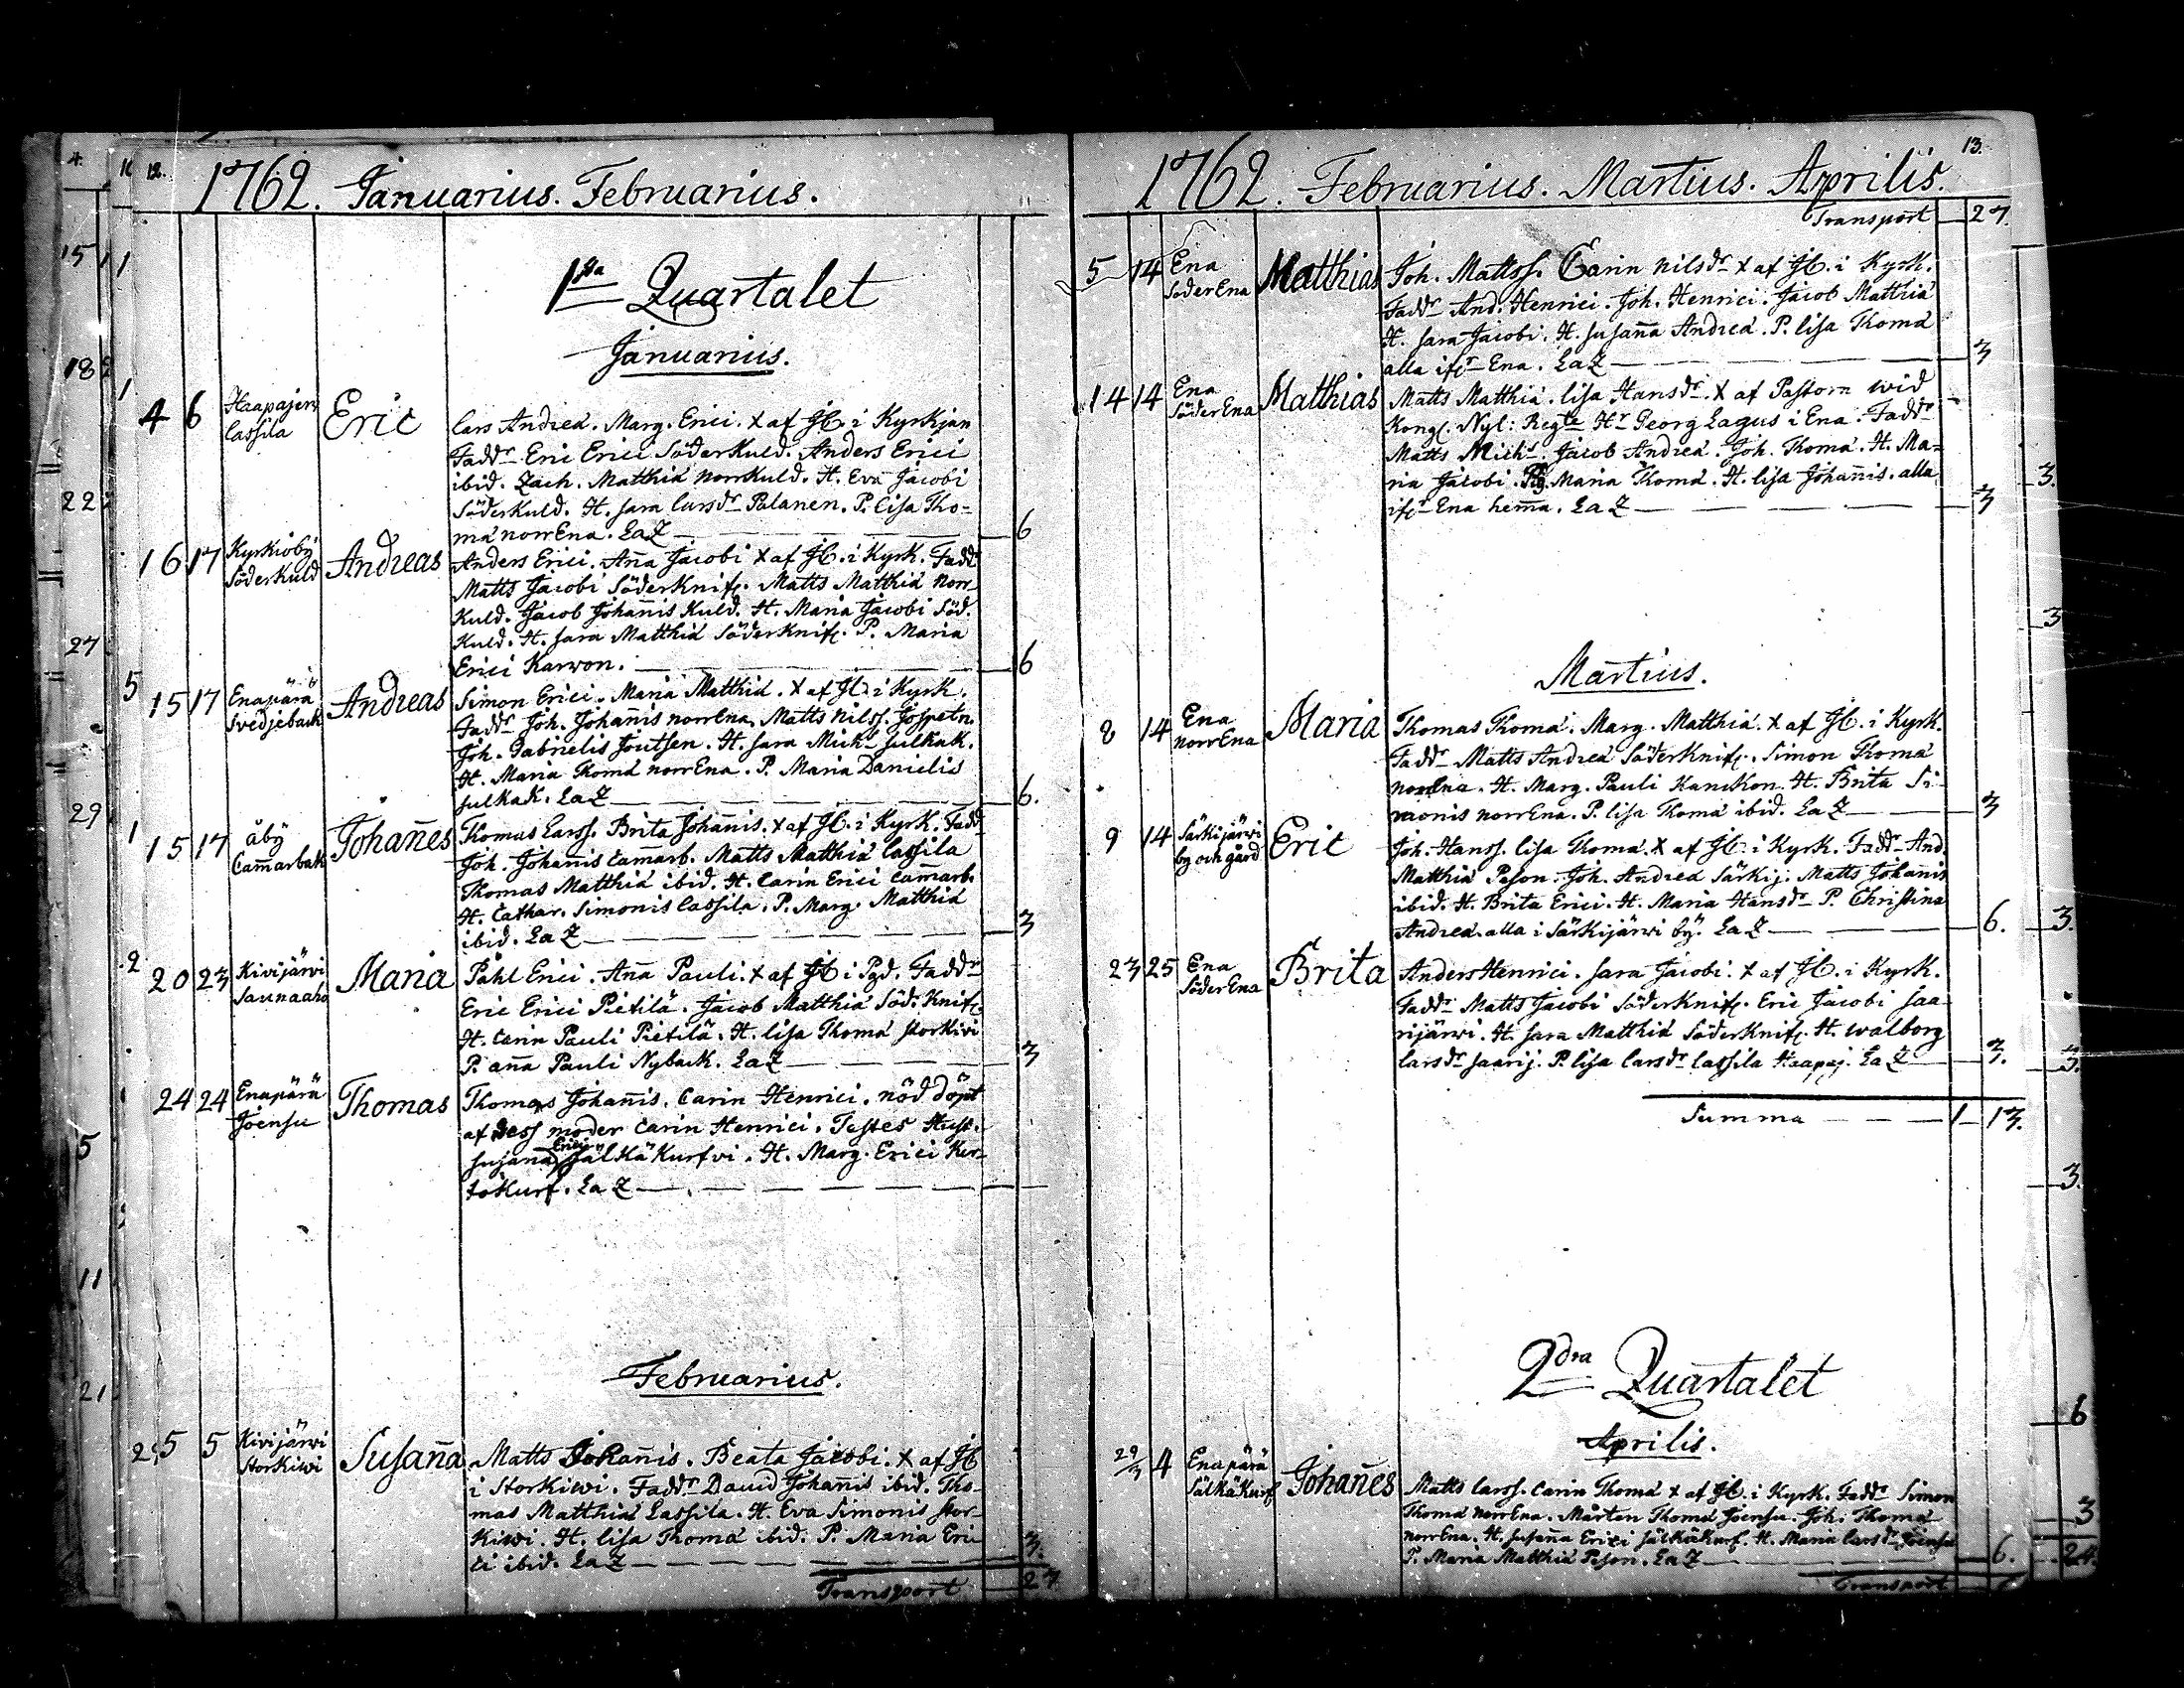 12.
1762. Januarius. Februarius.
1sta Quartalet
Januarius.
4 6 Haapajerw Lassila Eric Lars Andreæ. Marg. Erici. x af JC. i Kyrkjan
Faddr Eric Erici Söderkuld. Anders Erici
ibid. Zach. Matthiæ Norrkuld. H. Eva Jacobi
Söderkuld. H. Sara Larsdr Palanen. P. Lisa Tho-
mæ norrEna. LaZ 6
16 17 Kyrkioby Söderkuld Andreas Anders Erici. Anna Jacobi x af JC. i Kyrk. Faddr
Matts Jacobi Söderknif. Matts Matthiæ Norr-
Kuld. Jacob Johannis Kuld. H. Maria Jacobi Söd.
Kuld. H. Sara Matthiæ Söderknif. P. Maria
Erici Karvon. 6
15 17 Enapärä Svedjeback Andreas Simon Erici. Maria Matthiæ. x af JC. i Kyrk.
Faddr Joh. Johannis norrEna. Matts Nilss.
Joh. Gabrielis Joutsen. H. Sara Mich. Julkak.
H. Maria Thomæ norrEna. P. Maria Danielis
Julkak. LaZ 6.
15 17 åby Cammarbak Johannes Thomas Larss. Brita Johannis. x af JC. i Kyrk. Faddr
Joh. Johannis Cammarb. Matts Matthiæ Lassila
Thomas Matthiæ ibid. H. Carin Erici Cammarb.
H. Cathar. Simonis Lassila. P. Marg. Matthiæ
ibid. LaZ 3
20 23 Kivijärvi Saunaaho Maria Påhl Erici. Anna Pauli. x af JC i Pgd. Faddr
Eric Erici Pietilä. Jacob Matthiæ Söd. Knif.
H. Carin Pauli Pietilä. H. Lisa Thomæ Storkivi
P. Anna Pauli Nyback. LaZ 3
24 24 Enapärä Joensu Thomas Thomas Johannis. Carin Henrici. nöd döpt
af dess moder Carin Henrici. Testes Hust.
Susanna Erici Sälkäkurfvi. H. Marg. Erici Ker-
tokurf. LaZ
Februarius.
5 5 Kivijärvi Storkiwi Susanna Matts Johannis. Beata Jacobi. x af JC
i Storkiwi. Faddr David Johannis ibid. Tho-
mas Matthiæ Lassila. H. Eva Simonis Stor-
kiwi. H. Lisa Thomæ ibid. P. Maria Eri-
ci ibid. LaZ 3.
Transport 27
13.
1762. Februarius. Martius. Aprilis.
Transport 27.
5 14 Ena SöderEna Matthias Joh. Mattss. Carin Nilsdr x af JC. i Kyrk.
Faddr And. Henrici. Joh. Henrici. Jacob Matthiæ
H. Sara Jacobi. H. Susanna Andreæ. P. Lisa Thomæ
alla ifr Ena. LaZ 3
14 14 Ena SöderEna Matthias Matts Matthiæ. Lisa Hansdr. x af Pastorn wid
Kongl. Nyl: Regte Hr Georg Lagus i Ena. Faddr
Matts Michs. Jacob Andreæ. Joh. Thomæ. H. Ma-
ria Jacobi. Pig. Maria Thomæ. H. Lisa Johannis. alla
ifr Ena hemma. LaZ 3
Martius.
8 14 Ena norrEna Maria Thomas Thomæ. Marg. Matthiæ. x af JC. i Kyrk.
Faddr Matts Andreæ Söderknif. Simon Thomæ
norrEna. H. Marg. Pauli Kanckon. H. Brita Si-
monis norrEna. P. Lisa Thomæ ibid. LaZ 3
9 14 Särkijärwi by och gård Eric Joh. Hanss. Lisa Thomæ. x af JC. i Kyrk. Faddr And.
Matthiæ Peson. Joh. Andreæ Särkij. Matts Johannis
ibid. H. Brita Erici. H. Maria Hansdr P. Christina
Andreæ. alla i Särkijärwi by. LaZ 6.
23 25 Ena SöderEna Brita Anders Henrici. Sara Jacobi. x af JC. i Kyrk.
Faddr Matts Jacobi Söderknif. Eric Jacobi Saa-
rijärwi. H. Sara Matthiæ Söderknif. H. Walborg
Larsdr Saarij. P. Lisa Larsdr Lassila Haapaj. LaZ 3.
Summa 1 13.
2dra Quartalet
Aprilis.
29/3 4 Enapärä Sälkäkurf Johannes Matts Larss. Carin Thomæ x af JC. i Kyrk. Faddr Simon
Thomæ norrEna. Mårten Thomæ Joensu. Joh. Thomæ
norrEna. H. Susanna Erici Sälkäkurf. H. Maria Larsdr Joensu
P. Maria Matthiæ Peson. LaZ 6.
Transport 6